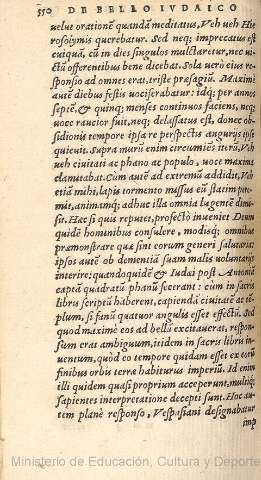 550 DE BELLO IVDAICO
uelut orationē quandā meditatus, Veh ueh Hie
rosolymis querebatur. Sed neq; imprecatus est
cuiquā, cū in dies singulos mulctaretur, nec ui-
ctū offerentibus bene dicebat. Sola uerò eius res
ponsio ad omnes erat, triste præsagiū. Maximè
autē diebus festis uociferabatur: idq; per annos
septē, & quinq; menses continuos faciens, neq;
uoce raucior fuit, neq; delassatus est, donec ob-
sidionis tempore ipsa re perspectis angurijs ipse
quieuit. Supra murū enim circumiēs iterū, Veh
ueh ciuitati ac phano ac populo, uoce maxima
clamitabat. Cùm autē ad extremū addidit, Veh
etiā mihi, lapis tormento missus eū statim pere-
mit, animamq; adhuc illa omnia lugentē dimi-
sit. Hæc si quis reputet, profectò inueniet Deum
quidē hominibus consulere, modisq; omnibus
præmonstrare quæ sint eorum generi salutaria:
ipsos autē ob dementiā suam malis voluntarijs
interire: quandoquidē & Iudæi post Antoniā
captā quadratū phanū fecerant: cùm in sacris
libris scriptū haberent, capiendā ciuitatē ac tē-
plum, si fanū quatuor angulis esset effectū. Sed
quod maximè eos ad bellū excitauerat, respon-
sum erat ambiguum, itidem in sacris libris in-
uentum, quòd eo tempore quidam esset ex eorū
finibus orbis terræ habiturus imperiū. Id enim
illi quidem quasi proprium acceperunt, multiq;
sapientes interpretatione decepti sunt. Hoc au-
tem planè responso, Vespasiani designabatur
imp
Ministerio de Educación, Cultura y Deporte